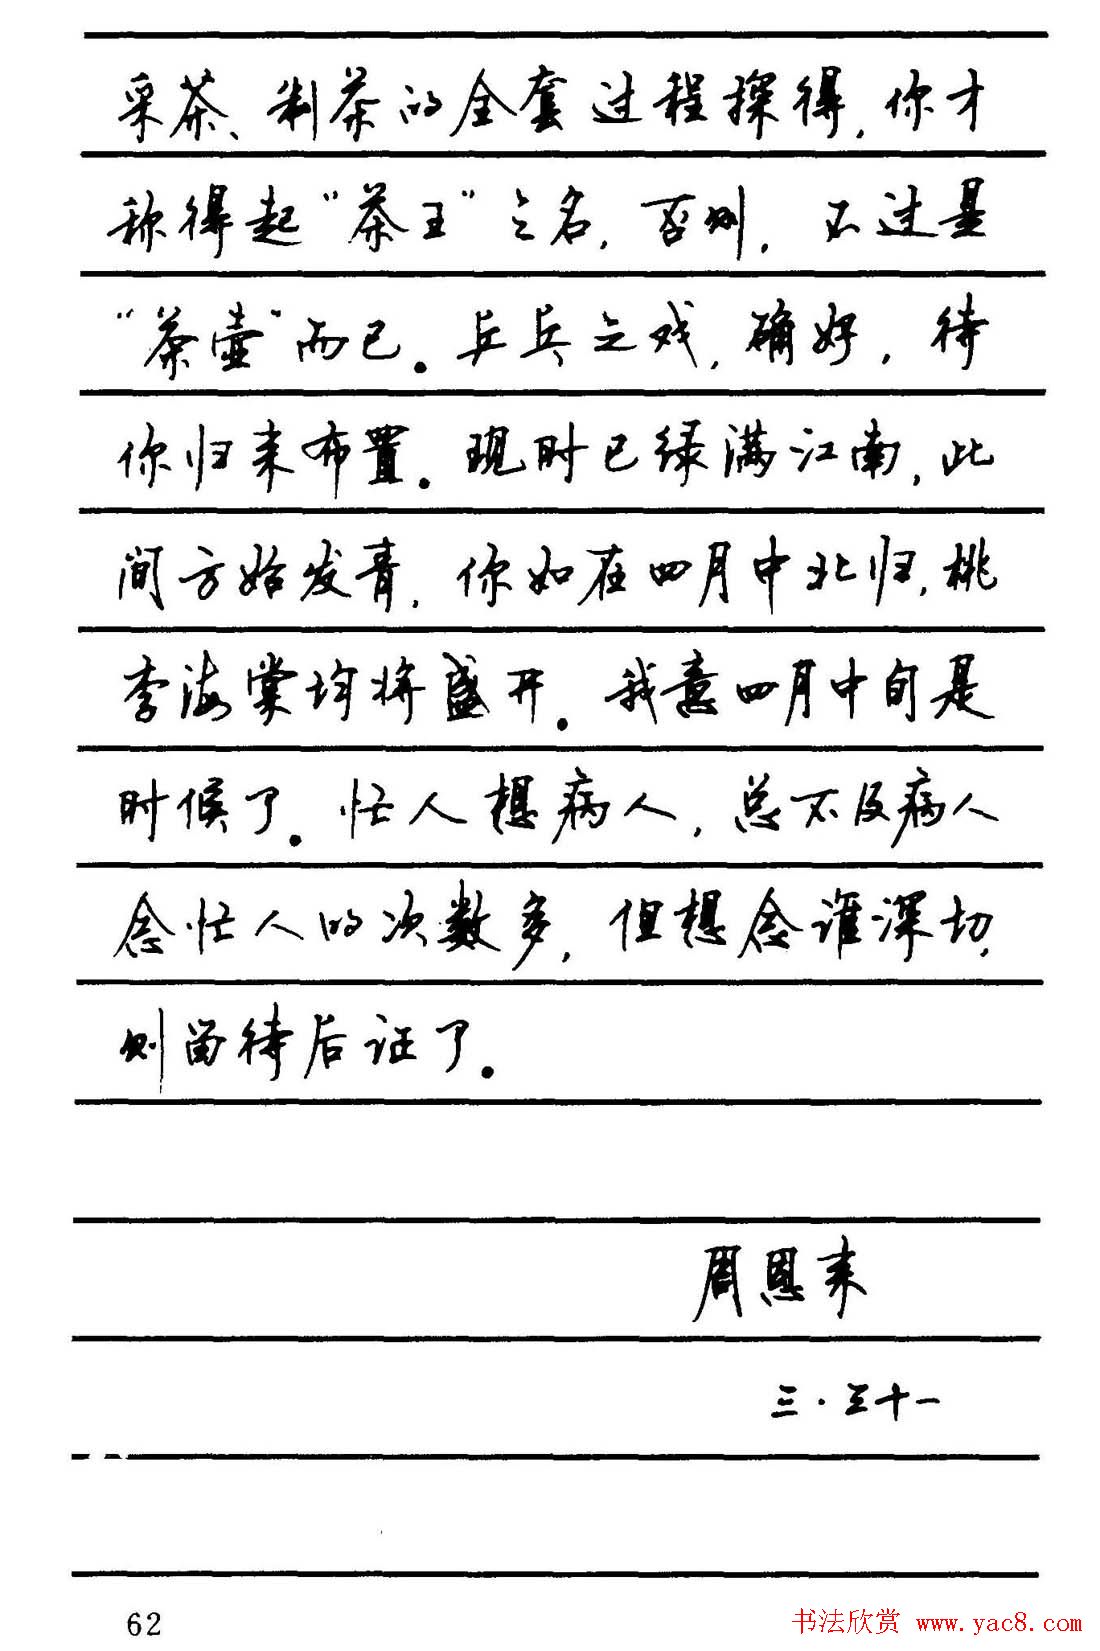 采茶、制茶的全套过程探得,你才
称得起“茶王”之名,否则,不过是
“茶壶”而已。乒乓之戏,确好,待
你归来布置。现时已绿满江南,此
间方始发青,你如在四月中北归,桃
李海棠均将盛开。我意四月中旬是
时候了。忙人想病人,总不及病人
念忙人的次数多,但想念谁深切,
则留待后证了。
周恩来
三·三十一
62
书法欣赏 www.yac8.com